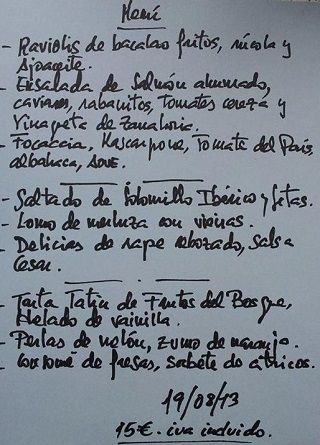 Menú
- Raviolis de bacalao fritos, rúcola y
Ajoaceite.
- Ensalada de Salmón ahumado,
caviares, rabanitos, tomates cereza y
Vinagreta de Zanahoria.
- Focaccia, Mascarpone, Tomate del País,
albahaca, AOVE.
- Saltado de Solomillo Ibérico y Setas.
- Lomo de merluza con vieiras.
- Delicias de rape rebozado, salsa
Cesar.
- Tarta Tatin de Frutos del Bosque,
Helado de vainilla.
- Perlas de melón, zumo de naranjo.
- Consomé de fresas, sorbete de cítricos.
19/08/13
15€. iva incluido.